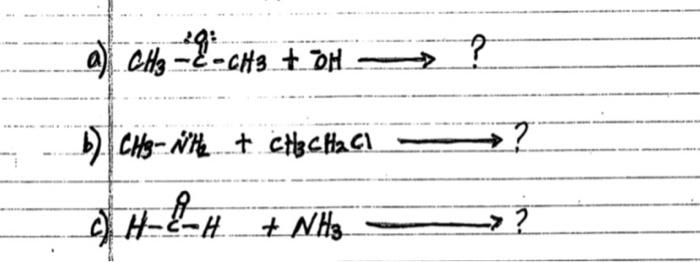 :O:
a) CH3-C-CH3 + ⁻OH ⟶ ?
b) CH3-N̈H2 + CH3CH2Cl ⟶ ?
O
c) H-C-H + NH3 ⟶ ?